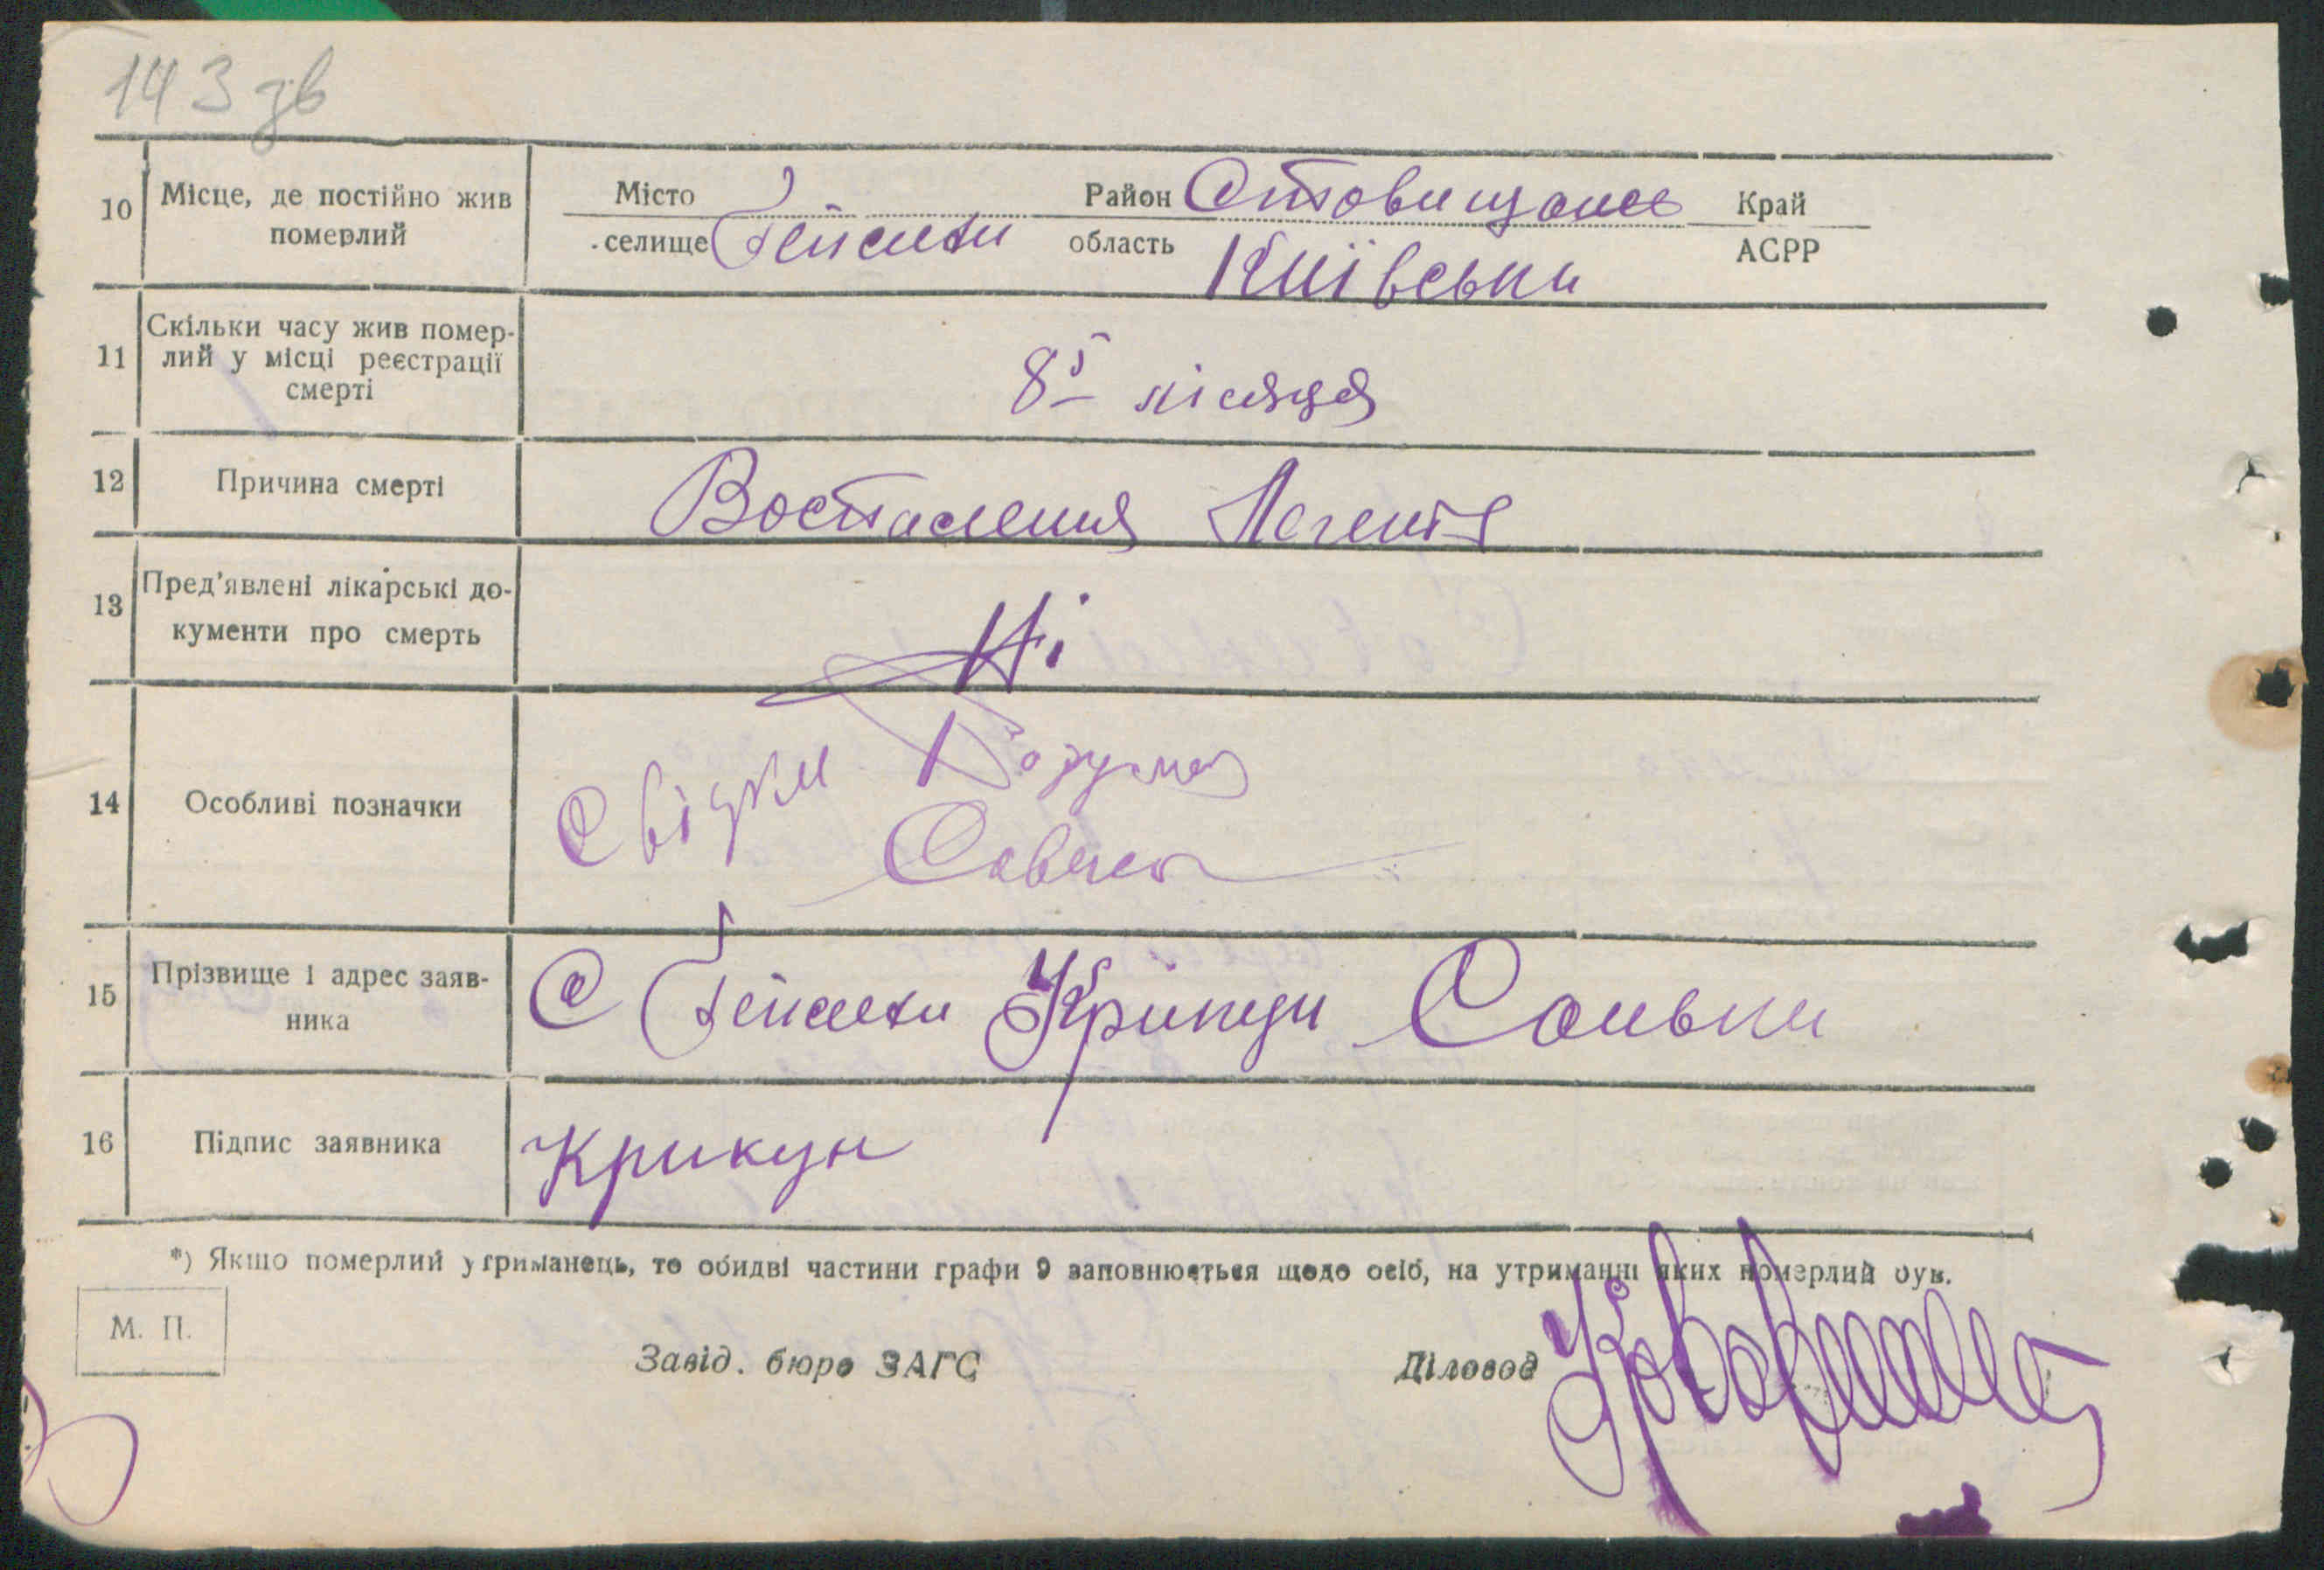 143 зв
10 Місце, де постійно жив померлий
Місто
селище Гейсихи
Район
область Київськи
Край
АСРР
11 Скільки часу жив помер-
лий у місці реєстрації
смерті
8 місяця
12 Причина смерті
Воспаления Легенія
13 Пред'явлені лікарські до-
кументи про смерть
Ні
14 Особливі позначки
Свідки
15 Прізвище і адрес заяв-
ника
С Гейсихи Крикун
16 Підпис заявника
Крикун
*) Якщо померлий утриманець, то обидві частини графи 9 заповнюється щодо осіб, на утриманні яких померлий був.
М. П.
Завід. бюро ЗАГС
Діловод